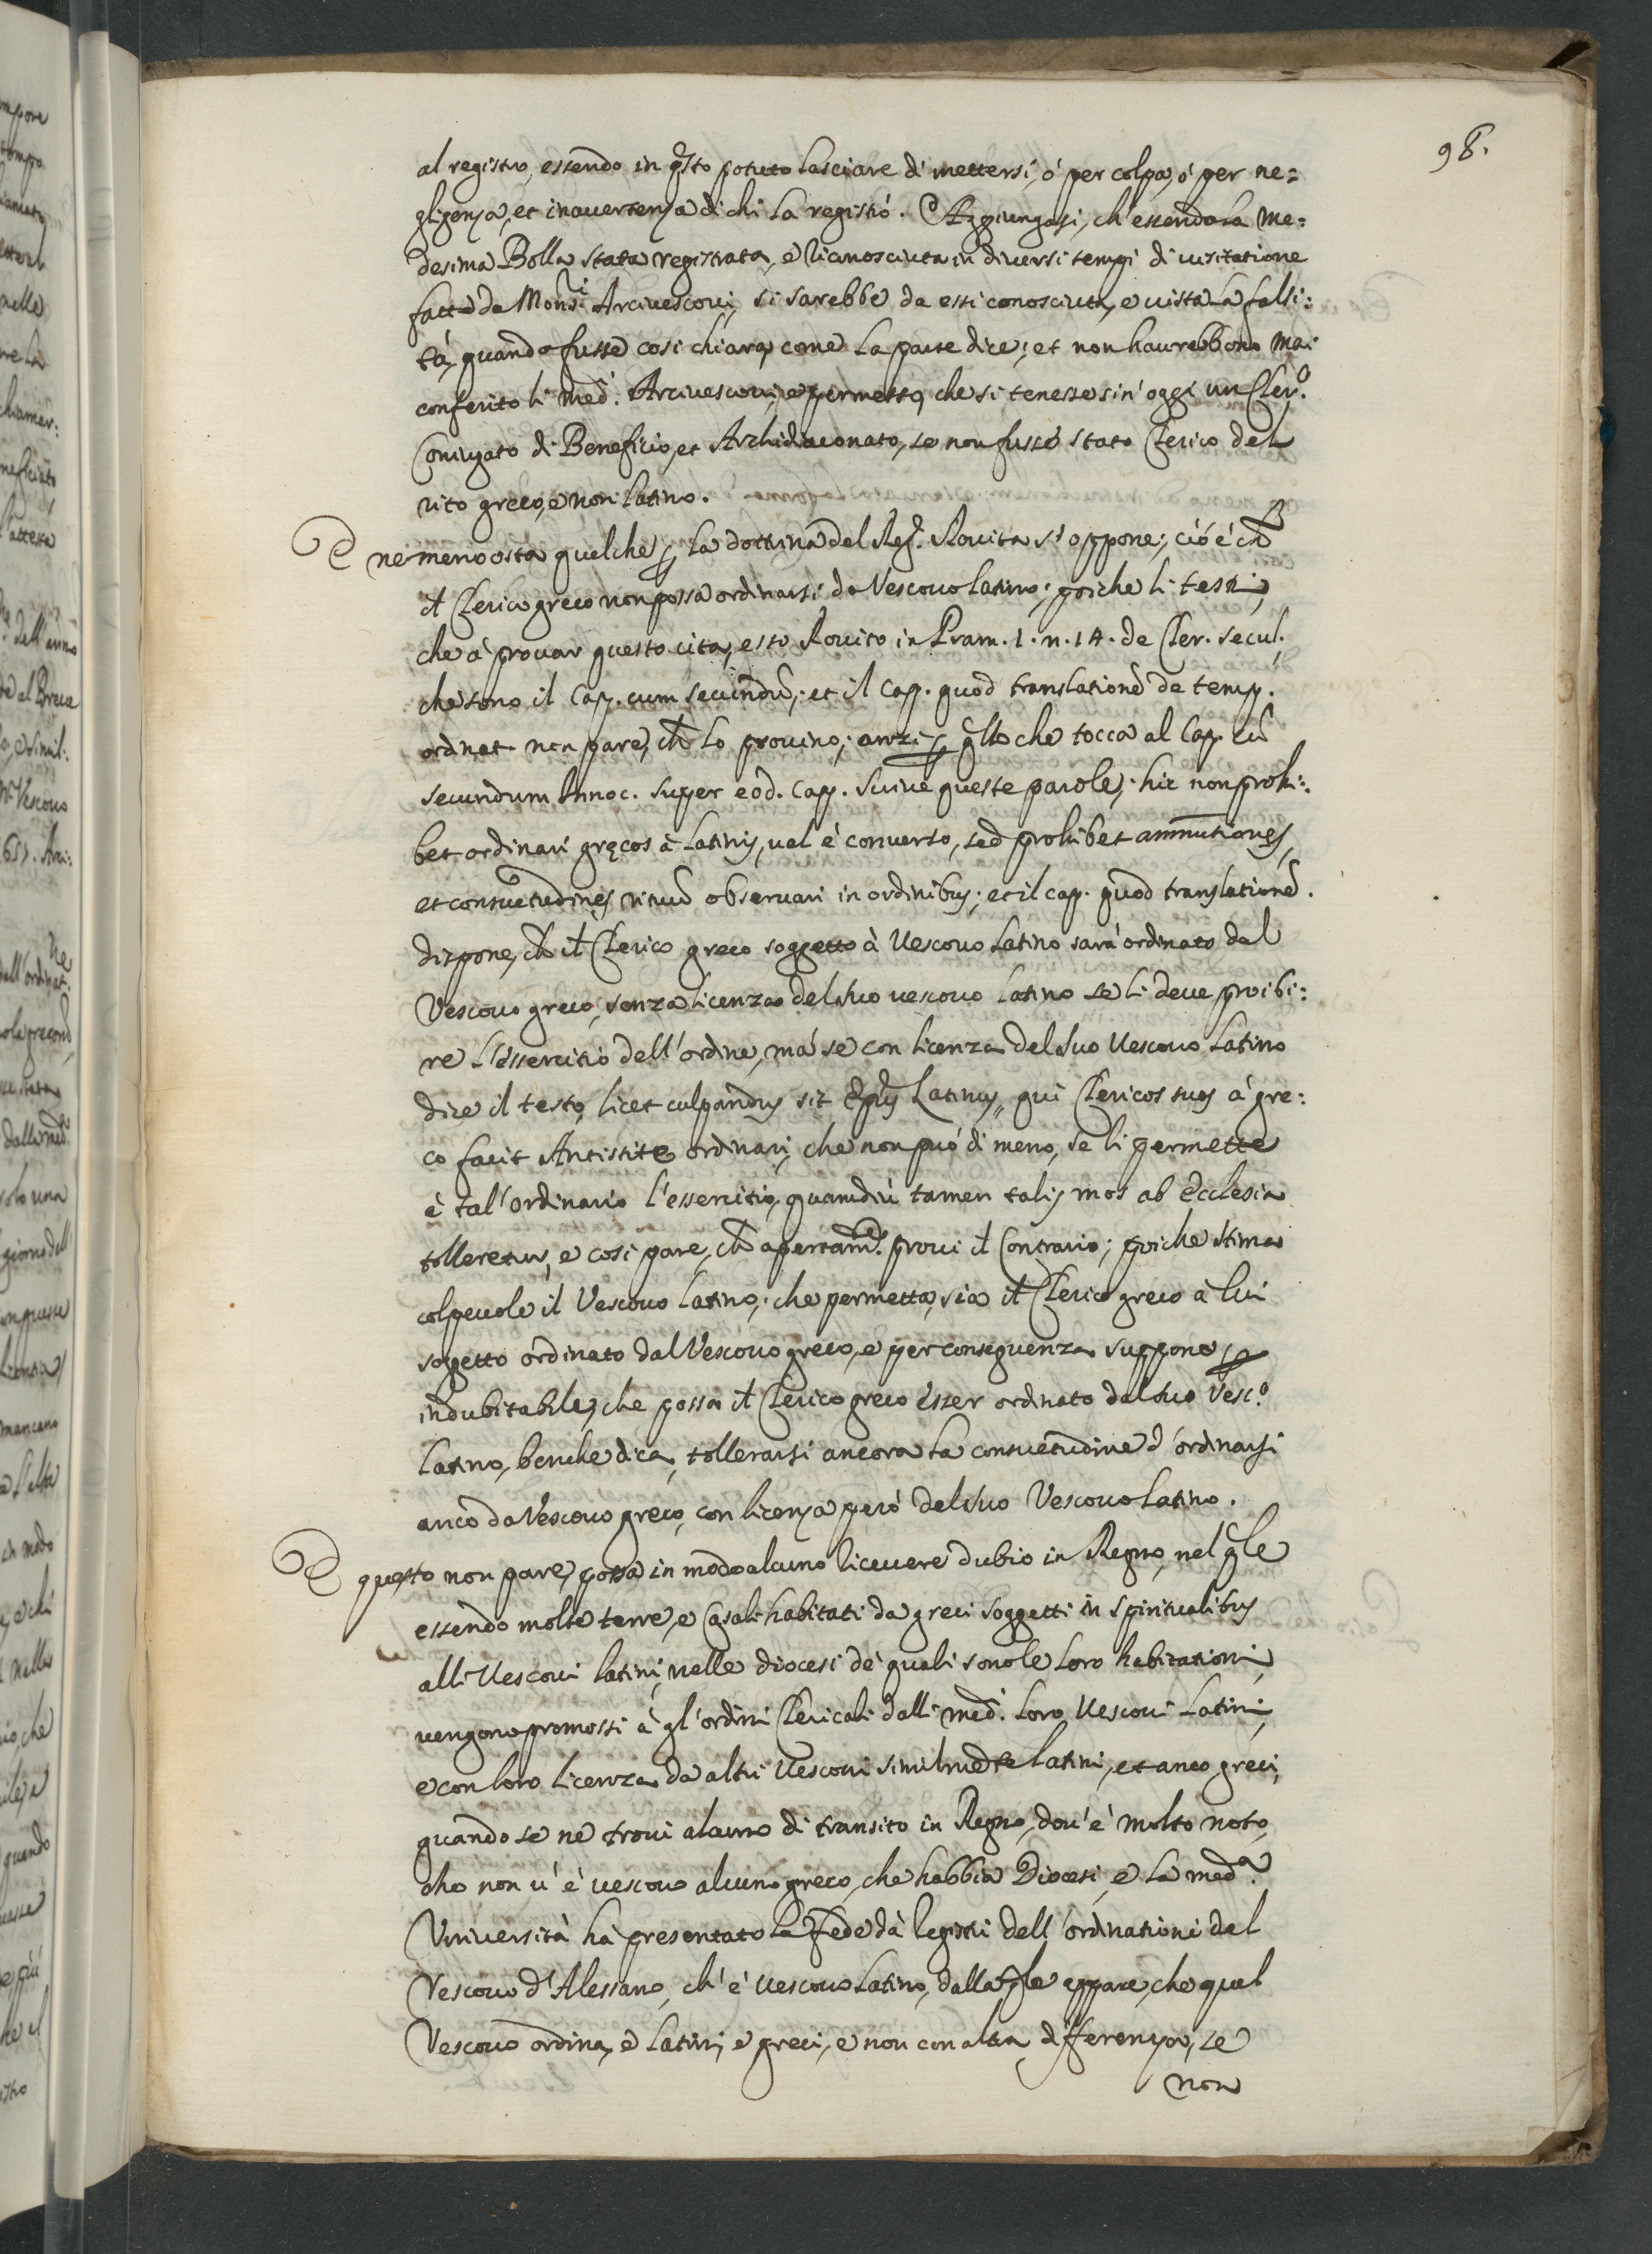 98.
al registro, essendo in q̃sto potuto lasciare di mettersi, ó per colpa, ó per ne=
gligenza, et inauertenza di chi la registró. Aggiungasi, ch'essendo la me=
desima Bolla stata registrata, e riconosciuta in diuersi tempi di uisitatione
fatte da Mons.ri Arciuescoui, si sarebbe da essi conosciuta, e uista la falsi:
tá, quando fusse cosi chiara, come la parte dice; et non haurebbono mai
conferito li med.i Arciuescoui, e permesso, che si tenesse sin' oggi un Cler.o
Coniugato di Beneficio, et Archidiaconato, se non fusse stato Clerico del
rito greco, e non latino.
E ne meno osta quel che ꝑ la dottrina del Reg. Rouito s'oppone; ció é ch̃
il Clerico greco non possa ordinarsi da Vescouo latino; poiche li testi,
che á prouar questo cita, esso Rouito in Pram. 1. n. 14. de Cler. secul.
che sono il Cap. cum secundũ; et il Cap. quod translationẽ de temp.
ordinat. non pare, ch̃ lo prouino; anzi ꝑ q̃llo che tocca al Cap. cũ
secundum Innoc. super eod. Cap. scriue queste parole; hic non prohi:
bet ordinari gręcos á latinis, uel é conuerso, sed prohibet ammutiones,
et consuetudines rituũ obseruari in ordinibus; et il cap. quod translationẽ.
dispone, ch̃ il Clerico greco soggetto á Vescouo latino sará ordinato dal
Vescouo greco, senza licenza del suo uescouo latino se li deue proibi:
re l'essercitio dell'ordine, má se con licenza del suo Vescouo latino
dice il testo, licet culpandus sit Ep̃us Latinus, qui Clericos suos á gre:
co facit Antistite ordinari, che non puó di meno, se li permette
é tal'ordinario l'essercitio, quamdiú tamen talis mos ab Ecclesia
tolleretur, e cosi pare, ch̃ apertam.te proui il Contrario; poiche stima
colpeuole il Vescouo latino; che permetta, sia il Clerico greco á lui
sogetto ordinato dal Vescouo greco, e per conseguenza suppone ꝑ
indubitabile, che possa il Clerico greco esser ordinato dal suo Vesc.o
latino, benche dica, tollerarsi ancora la consuetudine d'ordinarsi
anco da Vescouo greco, con licenza peró del suo Vescouo latino.
E questo non pare, possa in modo alcuno riceuere dubio in Regno, nel q̃le
essendo molte terre, e Casali habitati da greci soggetti in spiritualibus
alli Vescoui latini, nelle diocesi de' quali sono le loro habitationi,
uengono promossi á gl'ordini Clericali dalli med.i loro Vescoui Latini,
e con loro licenza da altri Vescoui similmẽte latini, et anco greci,
quando se ne troui alcuno di transito in Regno, dou'é molto noto,
che non u'é uescouo alcuno greco, che habbia Diocesi, e la med.a
Vniuersitá há presentato la fede dá legistri dell'ordinationi del
Vescouo d'Alessano, ch'é uescouo latino, dalla q̃le appare, che quel
Vescouo ordina, e latini, e greci, e non con altra differenza, se
non